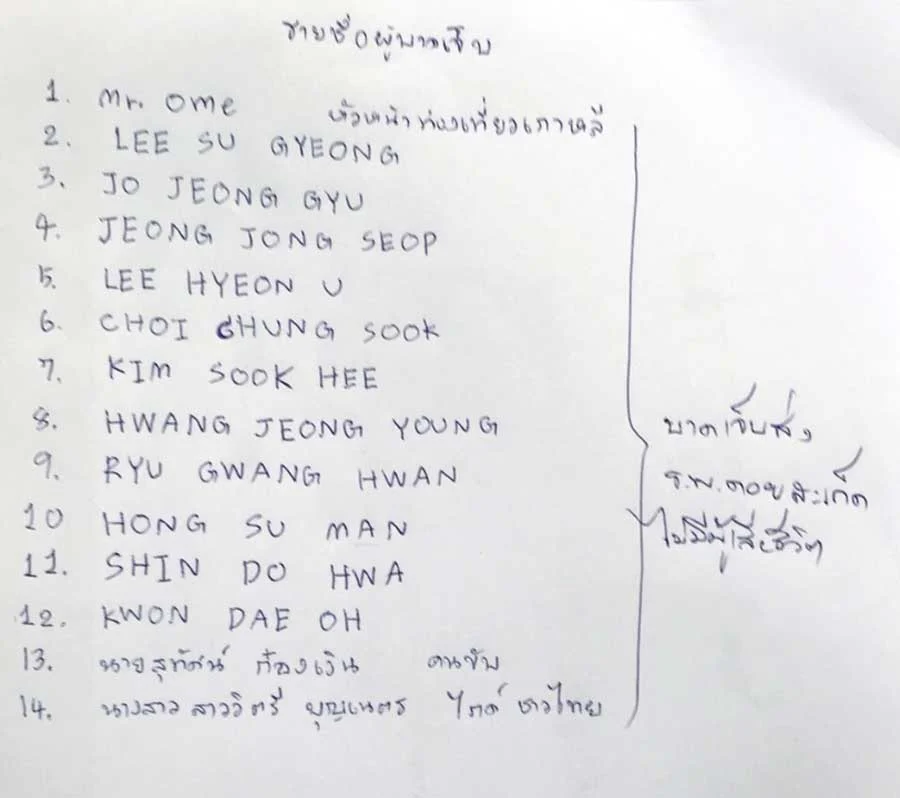 รายชื่อผู้บาดเจ็บ
1. Mr. OME หัวหน้าท่องเที่ยวเกาหลี
2. LEE SU GYEONG
3. JO JEONG GYU
4. JEONG JONG SEOP
5. LEE HYEON U
6. CHOI CHUNG SOOK
7. KIM SOOK HEE
8. HWANG JEONG YOUNG
9. RYU GWANG HWAN
10 HONG SU MAN
11. SHIN DO HWA
12. KWON DAE OH
13. นายสุทัศน์ ก้องเงิน คนขับ
14. นางสาวสาววิตรี บุญเนตร ไกด์ ชาวไทย
บาดเจ็บส่ง
ร.พ.ดอยสะเก็ด
ไม่มีผู้เสียชีวิต